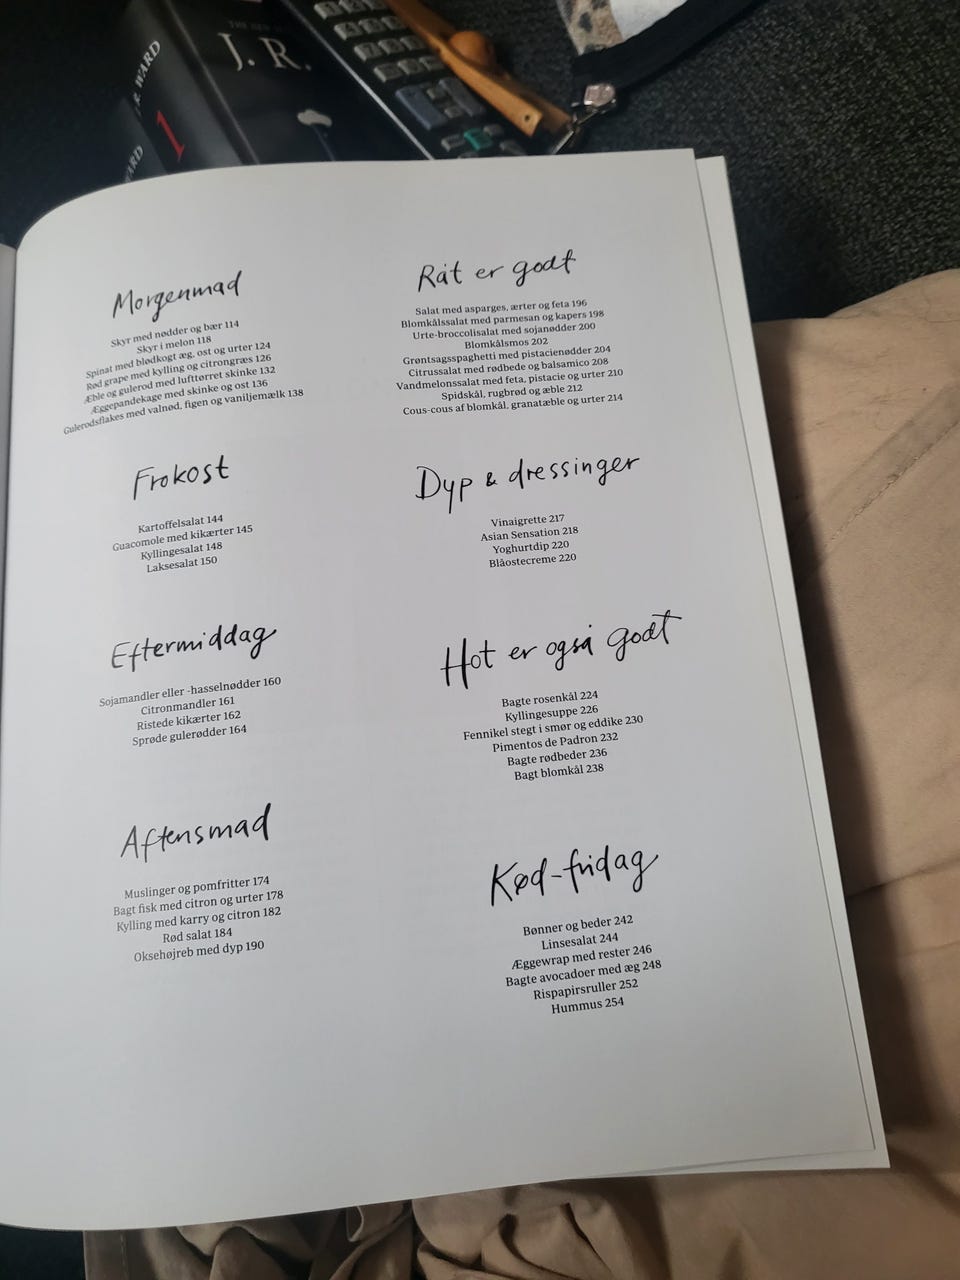 J. R.
R. WARD
1
WARD
Morgenmad
Skyr med nødder og bær 114
Skyr i melon 118
Spinat med blødkogt æg, ost og urter 124
Rød grape med kylling og citrongræs 126
Æble og gulerod med lufttørret skinke 132
Æggepandekage med skinke og ost 136
Gulerodsflakes med valnød, figen og vaniljemælk 138
Frokost
Kartoffelsalat 144
Guacomole med kikærter 145
Kyllingesalat 148
Laksesalat 150
Eftermiddag
Sojamandler eller -hasselnødder 160
Citronmandler 161
Ristede kikærter 162
Sprøde gulerødder 164
Aftensmad
Muslinger og pomfritter 174
Bagt fisk med citron og urter 178
Kylling med karry og citron 182
Rød salat 184
Oksehøjreb med dyp 190
Råt er godt
Salat med asparges, ærter og feta 196
Blomkålssalat med parmesan og kapers 198
Urte-broccolisalat med sojanødder 200
Blomkålsmos 202
Grøntsagsspaghetti med pistacienødder 204
Citrussalat med rødbede og balsamico 208
Vandmelonssalat med feta, pistacie og urter 210
Spidskål, rugbrød og æble 212
Cous-cous af blomkål, granatæble og urter 214
Dyp & dressinger
Vinaigrette 217
Asian Sensation 218
Yoghurtdip 220
Blåostecreme 220
Hot er også godt
Bagte rosenkål 224
Kyllingesuppe 226
Fennikel stegt i smør og eddike 230
Pimentos de Padron 232
Bagte rødbeder 236
Bagt blomkål 238
Kød-fridag
Bønner og beder 242
Linsesalat 244
Æggewrap med rester 246
Bagte avocadoer med æg 248
Rispapirsruller 252
Hummus 254